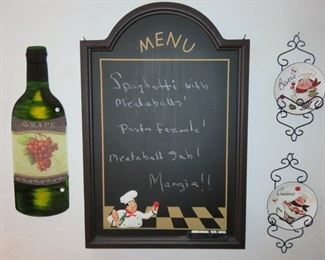 MENU
Spaghetti with
Meatballs!
Pasta Fazoole!
Meatball Sub!
Mangia!!
GRAPE